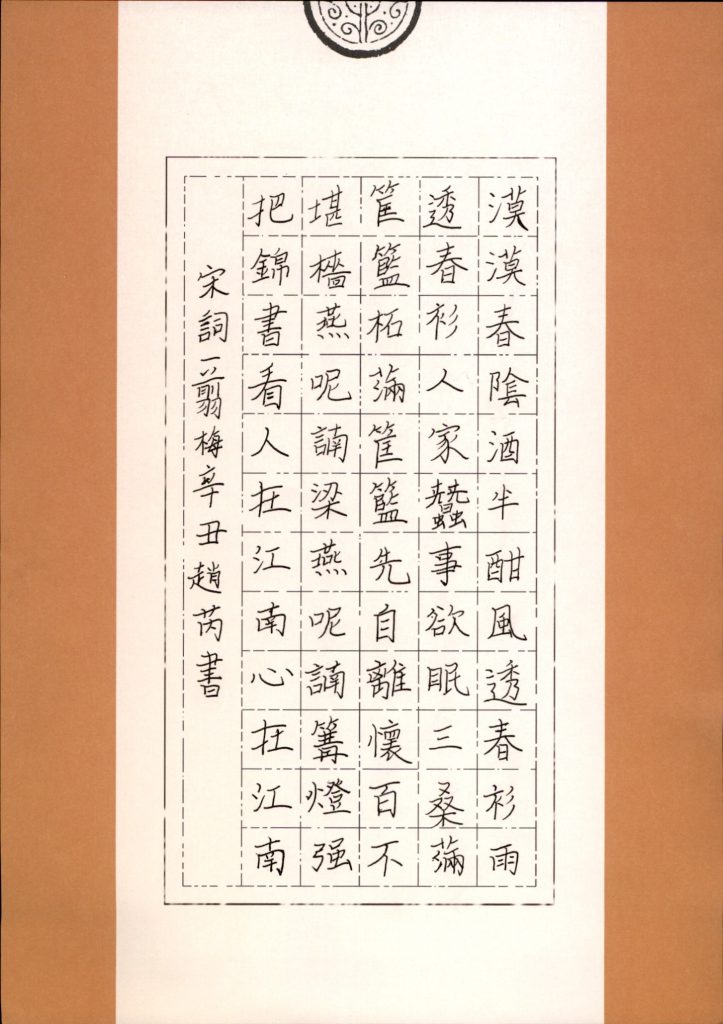 漠漠春陰酒半酣風透春衫雨
透春衫人家蠶事欲眠三桑滿
筐籃柘滿筐籃先自離懷百不
堪檣燕呢諵梁燕呢諵篝燈强
把錦書看人在江南心在江南
宋詞一翦梅辛丑趙芮書